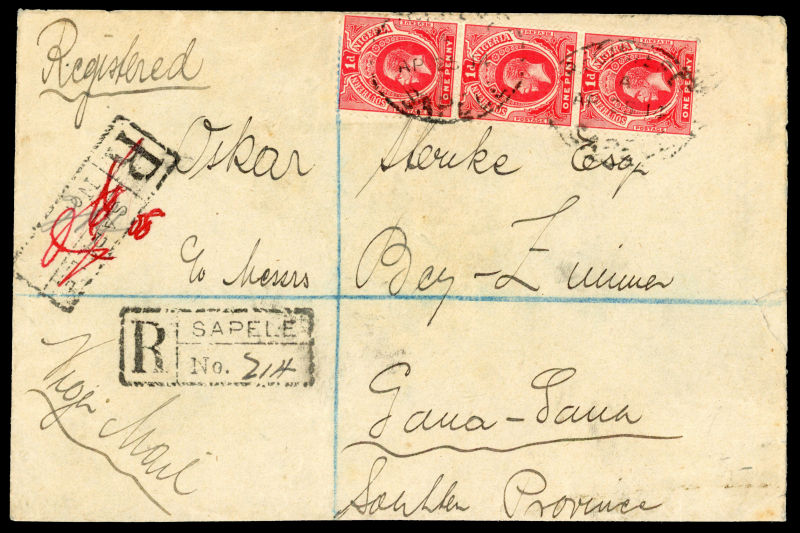 Registered
SOUTHERN NIGERIA POSTAGE & REVENUE 1d ONE PENNY
SOUTHERN NIGERIA POSTAGE & REVENUE 1d ONE PENNY
SOUTHERN NIGERIA POSTAGE & REVENUE 1d ONE PENNY
R
Oskar Esq
c/o Messrs Bey-Zimmer
R SAPELE
No. 214
Mail
Gana-Gana
Southern Province